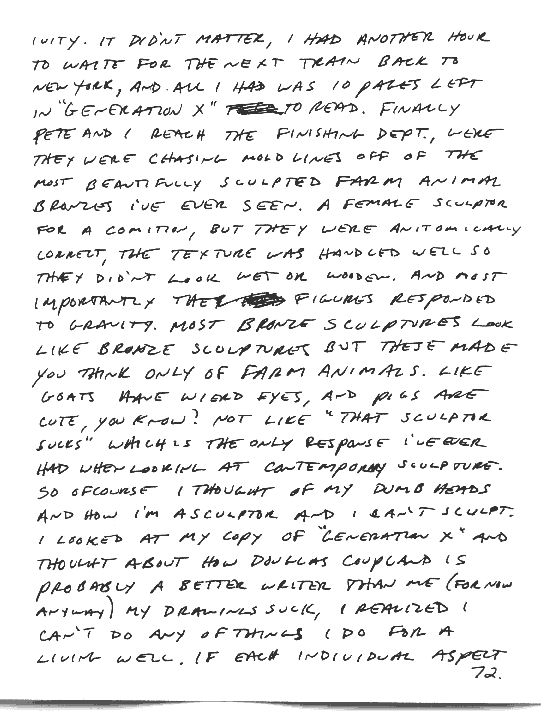 IVITY. IT DIDN'T MATTER, I HAD ANOTHER HOUR
TO WAITE FOR THE NEXT TRAIN BACK TO
NEW YORK, AND ALL I HAD WAS 10 PAGES LEFT
IN "GENERATION X" TO READ. FINALLY
PETE AND I REACH THE FINISHING DEPT., WERE
THEY WERE CHASING MOLD LINES OFF OF THE
MOST BEAUTIFULLY SCULPTED FARM ANIMAL
BRONZES I'VE EVER SEEN. A FEMALE SCULPTOR
FOR A COMITION, BUT THEY WERE ANITOMICALLY
CORRECT, THE TEXTURE WAS HANDLED WELL SO
THEY DIDN'T LOOK WET OR WOODEN. AND MOST
IMPORTANTLY THE FIGURES RESPONDED
TO GRAVITY. MOST BRONZE SCULPTURES LOOK
LIKE BRONZE SCULPTURES BUT THESE MADE
YOU THINK ONLY OF FARM ANIMALS. LIKE
GOATS HAVE WIERD EYES, AND PIGS ARE
CUTE, YOU KNOW? NOT LIKE "THAT SCULPTOR
SUCKS" WHICH IS THE ONLY RESPONSE I'VE EVER
HAD WHEN LOOKING AT CONTEMPORARY SCULPTURE.
SO OFCOURSE I THOUGHT OF MY DUMB HEADS
AND HOW I'M A SCULPTOR AND I CAN'T SCULPT.
I LOOKED AT MY COPY OF "GENERATION X" AND
THOUGHT ABOUT HOW DOUGLAS COUPLAND IS
PROBABLY A BETTER WRITER THAN ME (FOR NOW
ANYWAY) MY DRAWINGS SUCK, I REALIZED I
CAN'T DO ANY OF THINGS I DO FOR A
LIVING WELL. IF EACH INDIVIDUAL ASPECT
72.